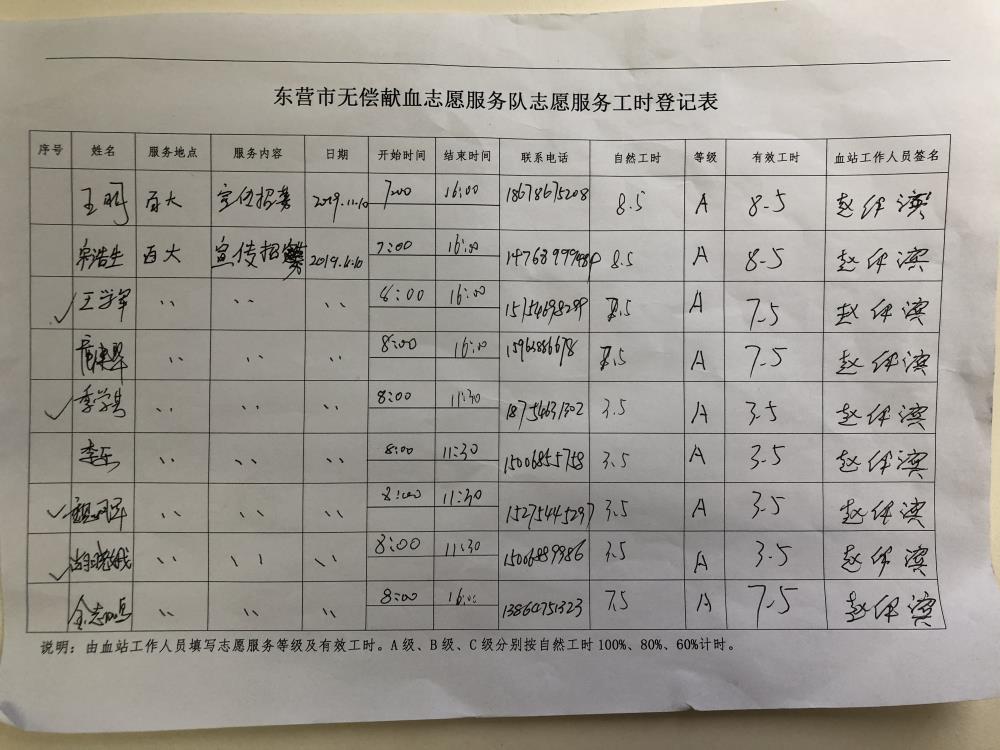 东营市无偿献血志愿服务队志愿服务工时登记表
序号 姓名 服务地点 服务内容 日期 开始时间 结束时间 联系电话 自然工时 等级 有效工时 血站工作人员签名
王明 百大 宣传招募 2019.11.10 7:00 16:00 18678675208 8.5 A 8.5
宗浩生 百大 宣传招募 2019.11.10 7:00 16:00 8.5 A 8.5
✓ 王学军 〃 〃 〃 8:00 16:00 15754698289 7.5 A 7.5
〃 〃 〃 8:00 16:00 7.5 A 7.5
✓ 季学其 〃 〃 〃 8:00 11:30 18754631302 3.5 A 3.5
李乐 〃 〃 〃 8:00 11:30 15006855758 3.5 A 3.5
✓ 〃 〃 〃 8:00 11:30 15275445297 3.5 A 3.5
✓ 〃 〃 〃 8:00 11:30 15006889986 3.5 A 3.5
〃 〃 〃 8:00 16:00 13864751323 7.5 A 7.5
说明：由血站工作人员填写志愿服务等级及有效工时。A级、B级、C级分别按自然工时100%、80%、60%计时。